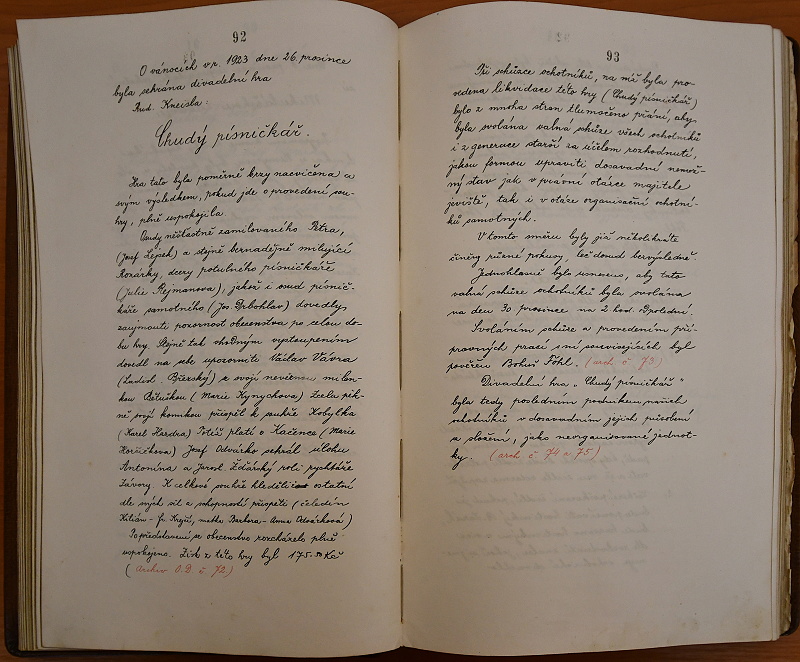 92
O vánocích v r. 1923 dne 26. prosince
byla sehrána divadelní hra
Rud. Kneisla:
Chudý písničkář.
Hra tato byla poměrně brzy nacvičena a
svým výsledkem, pokud jde o provedení sou-
hry, plně uspokojila.
Osudy nešťastně zamilovaného Petra,
(Josef Lepek) a stejně beznadějně milující
Rozárky, dcery potulného písničkáře
(Julie Rejmanova), jakož i osud písnič-
káře samotného (Jos. Drbohlav) dovedly
zaujmouti pozornost obecenstva po celou do-
bu hry. Stejně tak vhodným vystoupením
dovedl na sebe upozorniti Václav Vávra
(Ladisl. Březský) se svojí nevěrnou milen-
kou Bětuškou (Marie Kynychova) Zcela pěk-
ně svojí komikou přispěl k souhře Kobylka
(Karel Hardra) Totéž platí o Kačence (Marie
Horáčkova) Josef Odvárko sehrál úlohu
Antonína a Jarosl. Žďárský roli rychtáře
Závory. K celkové souhře hleděli ostatní
dle svých sil a schopností přispěti (čeledín
Kilián - Fr. Krejčí, matka Barbora - Anna Odvárková)
Po představení se obecenstvo rozcházelo plně
uspokojeno. Zisk z této hry byl 175.50 Kč
(Archiv O.D. č. 72.)
93
Při schůzce ochotníků, na níž byla pro-
vedena likvidace této hry (Chudý písničkář)
bylo z mnoha stran tlumočeno přání, aby
byla svolána valná schůze všech ochotníků
i z generace starší za účelem rozhodnutí,
jakou formou upraviti dosavadní nemož-
ný stav jak v právní otázce majitele
jeviště, tak i v otázce organisační ochotní-
ků samotných.
V tomto směru byly již několikráte
činěny různé pokusy, leč dosud bezvýsledně.
Jednohlasně bylo usneseno, aby tato
valná schůze ochotníků byla svolána
na den 30 prosince na 2 hod. odpolední.
Svoláním schůze a provedením pří-
pravných prací s ní souvisejících byl
pověřen Bohuš Föhl. (arch č. 73)
Divadelní hra „Chudý písničkář"
byla tedy posledním podnikem našich
ochotníků v dosavadním jejich působení
a složení, jako neorganisované jednot-
ky. (arch č. 74 a 75)